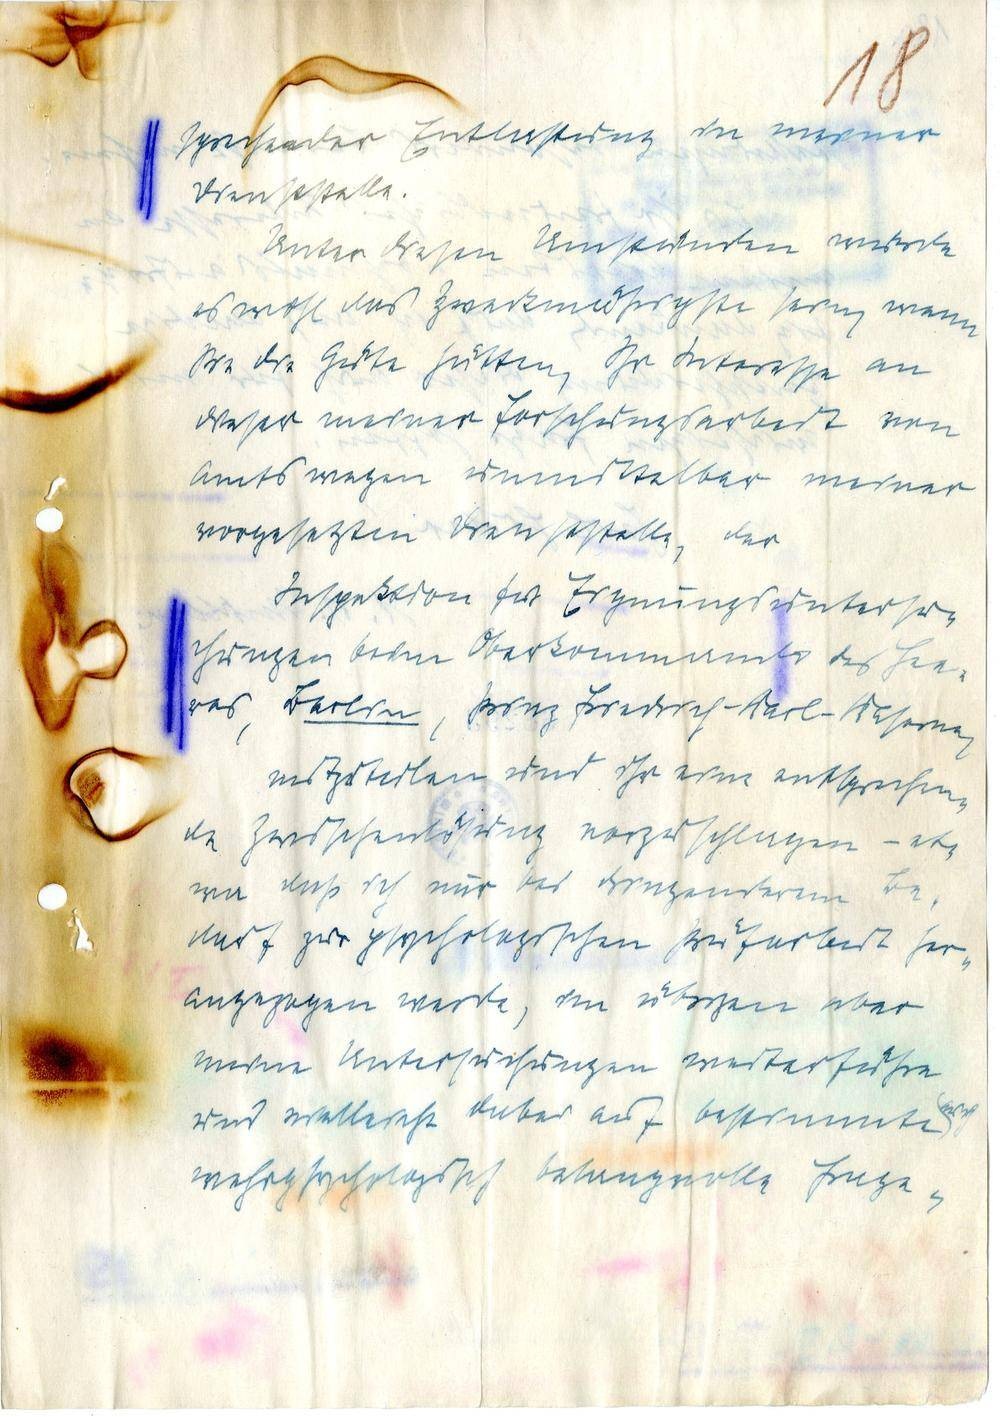 18
sprechender Entlastung in meiner
Dienststelle.
Unter diesen Umständen würde
es wohl das Zweckmäßigste sein, wenn
Sie die Güte hätten, Ihr Interesse an
dieser meiner Forschungsarbeit von
amtswegen unmittelbar meiner
vorgesetzten Dienststelle, der
Inspektion für Eignungsuntersu-
chungen beim Oberkommando des Hee-
res, Berlin, Prinz Friedrich-Karl-Kaserne,
mitzuteilen und ihr eine entsprechen-
de Zwischenlösung vorzuschlagen – et-
wa daß ich nur bei dringenderem Be-
darf zur psychologischen Prüfarbeit her-
angezogen werde, im übrigen aber
meine Untersuchungen weiterführe
und vielleicht dabei auf bestimmte, auch
wehrpsychologisch belangvolle Frage-